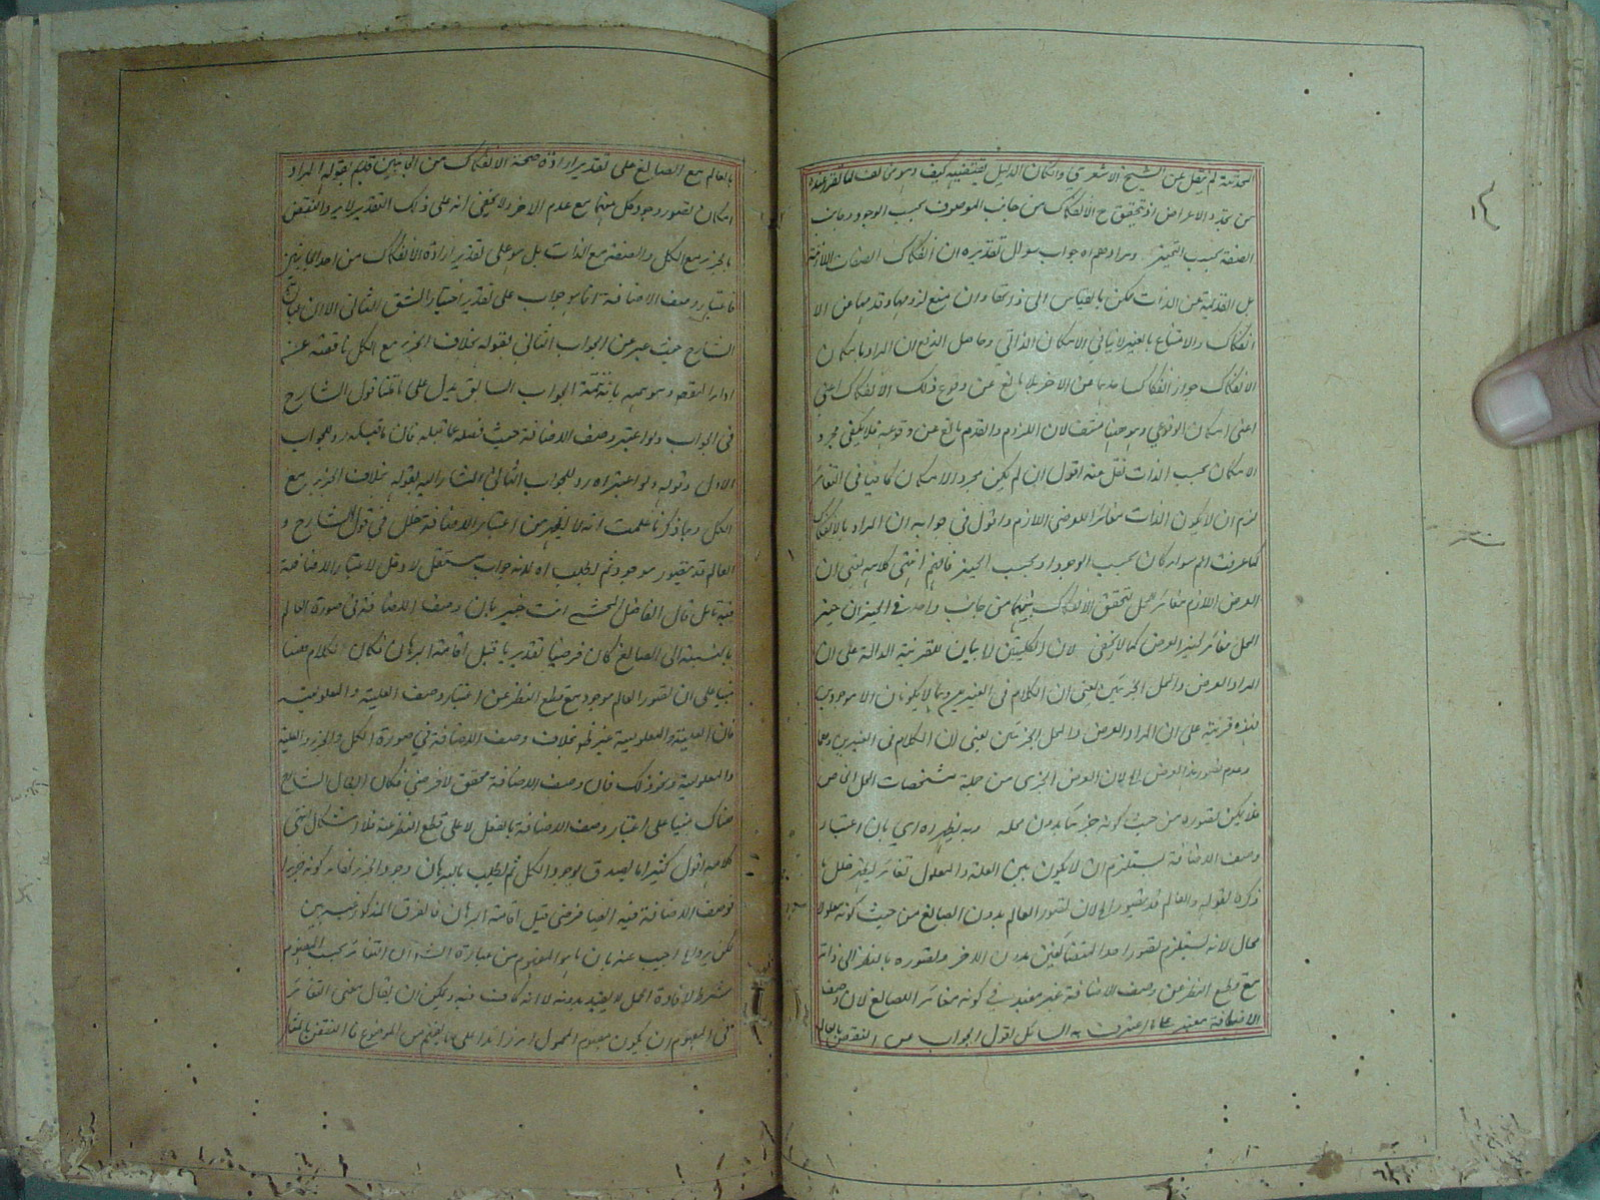 المحدثة لم ينقل عن الشيخ الاشعري وان كان الدليل يقتضيه كيف وهو مخالف لما تقرر عنده
من تجدد الاعراض اذ تحقق ح الانفكاك من جانب الموصوف بحسب الوجود وجانب
الصفة بحسب التحيز ومرادهم اه جواب سوال تقديره ان انفكاك الصفات اللازمة
بل القديمة عن الذات ممكن بالقياس الى ذواتها وان منع لزومها وقدمها عن الا
انفكاك والامتناع بالغير لا ينافي الامكان الذاتي وحاصل الدفع ان المراد بامكان
الانفكاك جواز انفكاك احدهما عن الاخر بلا مانع عن وقوع ذلك الانفكاك اعني
اعنى امكان الوقوعي وهو ههنا منتف لان اللزوم والقدم مانع عن وقوعه فلا يكفي مجرد
الامكان بحسب الذات نقل منه اقول ان لم يكن مجرد الامكان كافيا في التغائر
لزم ان لا يكون الذات مغائر اللعرض اللازم واقول في جوابه ان المراد بالانفكاك
كما عرفت اعم سواء كان بحسب الوجود او بحسب الحيز فافهم انتهى كلامه يعنى ان
العرض اللازم مغائر لمحل لتحقق الانفكاك بينهما من جانب واحد في الحيز ان حيز
المحل مغائر لحيز العرض كما لا يخفى لان الكليتين اه بيان للقرينة الدالة على ان
المراد العرض والمحل الجزئيين يعنى ان الكلام في الغيرين وهما لا يكونان الا موجودين
فهذه قرينة على ان المراد العرض والمحل الجزئيين يعنى لان الكلام في الغيرين وهما
وعدم تصور هذا العرض اه لان العرض الجزئى من جملة مشخصات المحل الخاص
فلا يمكن تصوره من حيث كونه جزئيا بدون محله وبه يظهر اه اي بان اعتبار
وصف الاضافة يستلزم ان لا يكون بين العلة والمعلول تغائر يظهر خلل ما
ذكره بقوله والعالم قد يتصور اه لان تصور العالم بدون الصانع من حيث كونه معلولا
محال لانه يستلزم تصور احد المتضائفين بدون الاخر وتصوره بالنظر الى ذاته
مع قطع النظر عن وصف الاضافة غير مفيد في كونه مغائر اللصانع لان وصف
الاضافة معتبر اعترف به السائل لقول الجواب عن النقض بالعالم
بالعالم مع الصانع على تقدير ارادة صحة الانفكاك من الجانبين فليتم بقوله المراد
امكان تصور وجود كل منهما مع عدم الاخر ولا يخفى انه على ذلك التقدير لا يرد النقض
بالجزء مع الكل والصفة مع الذات بل هو على تقدير ارادة الانفكاك من احد الجانبين
فاعتبار وصف الاضافة انما هو جواب على تقدير اختيار الشق الثاني الا ان عبارة
الشارح حيث عبر عن الجواب الثاني بقوله بخلاف الجزء مع الكل ناقصة عن
اداء المقصود وموهمة بانه تتمة الجواب السابق يدل على ما قلنا قول الشارح
في الجواب ولو اعتبر وصف الاضافة حيث فصله عما قبله فان ما قبله رد للجواب
الاول وقوله ولو اعتبر اه رد للجواب الثاني المشار اليه بقوله بخلاف الجزء مع
الكل وبما ذكرنا علمت انه لا ينجر من اعتبار الاضافة خلل في قول الشارح و
العالم قد يتصور موجودا ثم يطلب اه لانه جواب مستقل لا دخل لاعتبار الاضافة
فيه تامل قال الفاضل المحشي انت خبير بان وصف الاضافة في صورة العالم
بالنسبة الى الصانع كان فرضيا تقديريا قبل اقامة البرهان فكان الكلام ههنا
مبنيا على ان تصور العالم موجود مع قطع النظر عن اعتبار وصف العلية والمعلولية
فان العلية والمعلولية غير ظ بخلاف وصف الاضافة في صورة الكل والجزء والعلية
والمعلولية ونحو ذلك فان وصف الاضافة محقق لا فرضي فكان المثال الشائع
هناك مبنيا على اعتبار وصف الاضافة بالفعل لا على قطع النظر عنه فلا اشكال انتهى
كلامه اقول كثيرا ما يصدق بوجود الكل ثم يطلب بالبرهان وجود الجزء كونه جزءا
فوصف الاضافة فيه ايضا فرضي قبل اقامة البرهان فالفرق المذكور غير بين
لكن يرد اه اجيب عنه بان ما هو المفهوم من عبارة الشارح ان التغائر بحسب المفهوم
مشرط لافادة الحمل لا يفيد بدونه لا انه كاف فيه ويمكن ان يقال معنى التغائر
في المفهوم ان يكون مفهوم المحمول امرا زائدا على ما يفهم من الموضوع فالنقض بالمثال